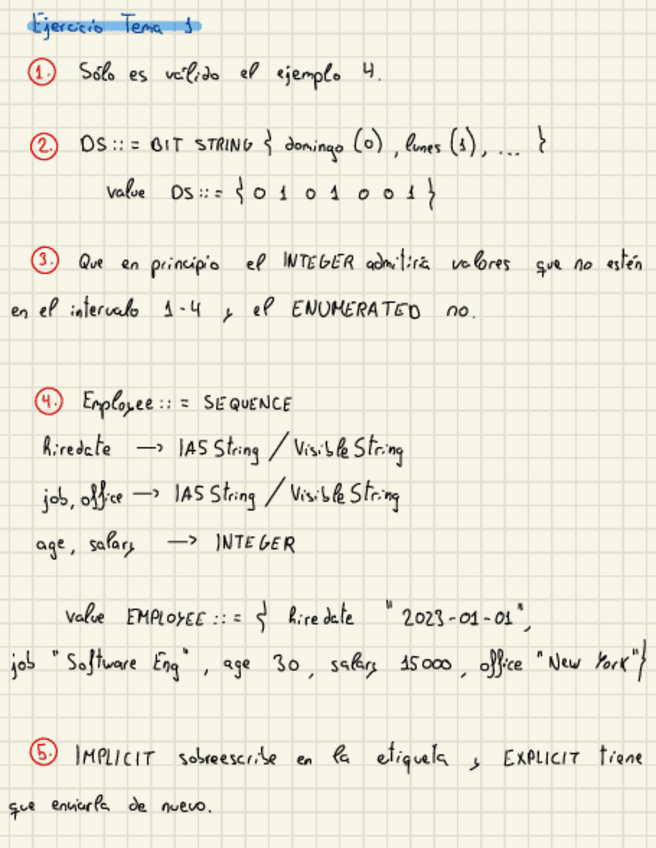 Ejercicio Tema 1
1. Sólo es válido el ejemplo 4.
2. DS ::= BIT STRING { domingo (0), lunes (1), ... }
value DS ::= { 0 1 0 1 0 0 1 }
3. Que en principio el INTEGER admitiría valores que no estén
en el intervalo 1-4 y el ENUMERATED no.
4. Employee ::= SEQUENCE
hiredate → IA5 String / Visible String
job, office → IA5 String / Visible String
age, salary → INTEGER
value EMPLOYEE ::= { hiredate "2023-01-01",
job "Software Eng", age 30, salary 15000, office "New York"}
5. IMPLICIT sobreescribe en la etiqueta y EXPLICIT tiene
que enviarla de nuevo.